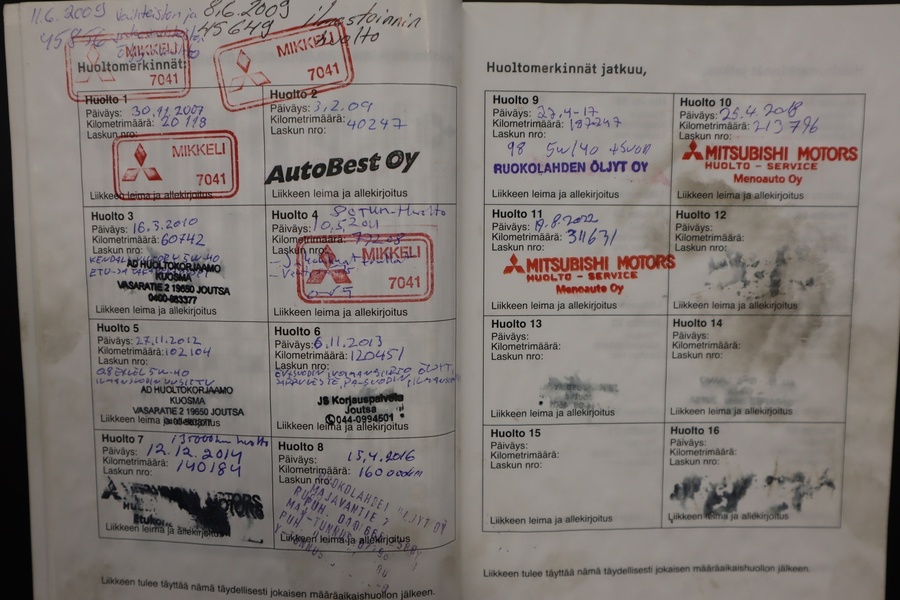 11.6.2009
8.6.2009
45649 ilmastoinnin
huolto
MIKKELI
7041
MIKKELI
7041
Huoltomerkinnät:
Huolto 1
Päiväys: 30.11.2007
Kilometrimäärä: 20 118
Laskun nro:
MIKKELI
7041
Liikkeen leima ja allekirjoitus
Huolto 2
Päiväys: 3.2.09
Kilometrimäärä: 40247
Laskun nro:
AutoBest Oy
Liikkeen leima ja allekirjoitus
Huolto 3
Päiväys: 16.3.2010
Kilometrimäärä: 60742
Laskun nro:
AD HUOLTOKORJAAMO
KUOSMA
VASARATIE 2 19650 JOUTSA
0400-883377
Liikkeen leima ja allekirjoitus
Huolto 4
Päiväys: 10.5.2011
Kilometrimäärä:
Laskun nro:
MIKKELI
7041
Liikkeen leima ja allekirjoitus
Huolto 5
Päiväys: 27.11.2012
Kilometrimäärä: 102104
Laskun nro:
AD HUOLTOKORJAAMO
KUOSMA
VASARATIE 2 19650 JOUTSA
Liikkeen leima ja allekirjoitus
Huolto 6
Päiväys: 6.11.2013
Kilometrimäärä: 120451
Laskun nro:
JS Korjauspalvelu
Joutsa
044-0994501
Liikkeen leima ja allekirjoitus
Huolto 7
Päiväys: 12.12.2014
Kilometrimäärä: 140184
Laskun nro:
MOTORS
Liikkeen leima ja allekirjoitus
Huolto 8
Päiväys: 15.4.2016
Kilometrimäärä: 160000km
Laskun nro:
Liikkeen leima ja allekirjoitus
Liikkeen tulee täyttää nämä täydellisesti jokaisen määräaikaishuollon jälkeen.
Huoltomerkinnät jatkuu,
Huolto 9
Päiväys: 27.4-17
Kilometrimäärä: 187247
Laskun nro:
5w/40
RUOKOLAHDEN ÖLJYT OY
Liikkeen leima ja allekirjoitus
Huolto 10
Päiväys: 25.4.2018
Kilometrimäärä: 213796
Laskun nro:
MITSUBISHI MOTORS
HUOLTO - SERVICE
Menoauto Oy
Liikkeen leima ja allekirjoitus
Huolto 11
Päiväys: 19.8.2022
Kilometrimäärä: 311631
Laskun nro:
MITSUBISHI MOTORS
HUOLTO - SERVICE
Menoauto Oy
Liikkeen leima ja allekirjoitus
Huolto 12
Päiväys:
Kilometrimäärä:
Laskun nro:
Liikkeen leima ja allekirjoitus
Huolto 13
Päiväys:
Kilometrimäärä:
Laskun nro:
Liikkeen leima ja allekirjoitus
Huolto 14
Päiväys:
Kilometrimäärä:
Laskun nro:
Liikkeen leima ja allekirjoitus
Huolto 15
Päiväys:
Kilometrimäärä:
Laskun nro:
Liikkeen leima ja allekirjoitus
Huolto 16
Päiväys:
Kilometrimäärä:
Laskun nro:
Liikkeen leima ja allekirjoitus
Liikkeen tulee täyttää nämä täydellisesti jokaisen määräaikaishuollon jälkeen.